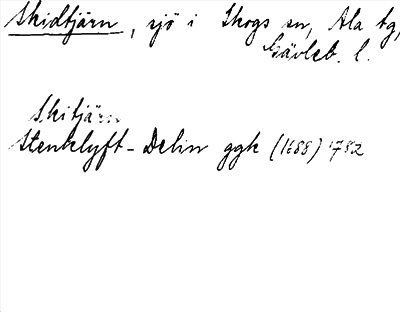 Skidtjärn, sjö i Skogs sn, Ala tg,
Gävleb. l.
Skitjärn
Stenklyft-Delin ggk (1688) 1782